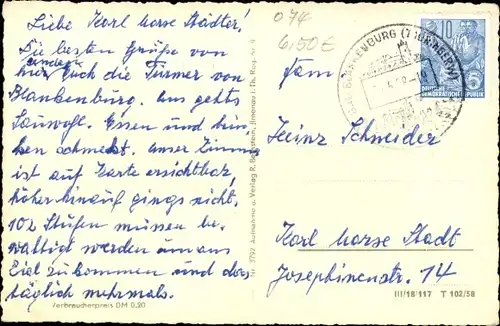 Liebe Karl horse Städter!
Die besten Grüße von
hier Euch die Türmer von
Blankenburg. Uns gehts
Sauwohl. Essen und trin-
ken schmeckt. Unser Zimmer
ist auf Karte ersichtbar,
höher hinauf gings nicht.
102 Stufen müssen be-
wältigt werden um ans
Ziel zu kommen und das
täglich mehrmals.
Verbraucherpreis DM 0.20
Nr. 3797 Aufnahme u. Verlag R. Bechstein, Ilmenau i. Th. Reg. Nr. 9
074
6,50€
BLANKENBURG (THÜRINGERW)
10
DEUTSCHE
DEMOKRATISCHE
REPUBLIK
Fam
Heinz Schneider
Karl horse Stadt
Josephinenstr. 14
III/18 117 T 102/58